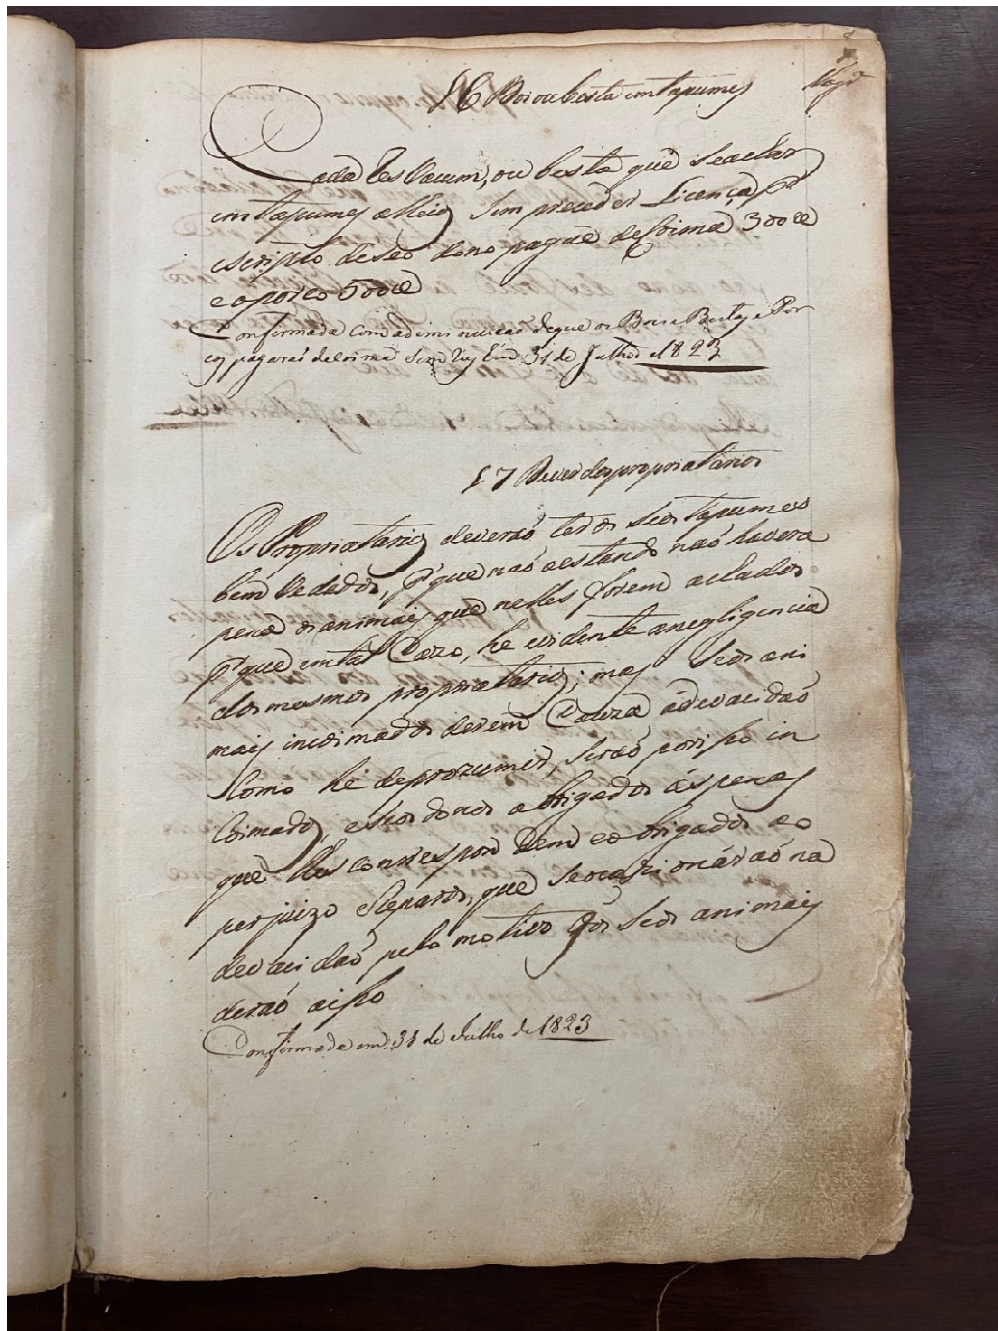 § 6 Boi ou besta em tapumes
Cada res Vacum, ou besta que se achar
em tapumes alheios sem preceder Licença pr.
escripto de seo dono pague de Coima 300 rs
e o porco 500 rs
Confirmada com a diminuicaõ de que os Bois e Bestas e Por
cos pagaraõ de coima Em 31 de Julho de 1823
§ 7 Dever dos propriatarios
Os Propriatarios deveraõ ter os seos tapumes
bem Vedados, pr. que naõ o estando naõ havera
pena os animais que nelles forem achados
pr. que em tal Cazo, he evidente a negligencia
dos mesmos propriatarios; mas se os ani
mais incoimados derem Cauza á devacidaõ
Como he de prezumir, seraõ por isso in
Coimados, e seos donos obrigados ás penas
que lhes correspondem e obrigados ao
perjuizo e reparos, que se ocazionáraõ na
devacidaõ pelo motivo q os seos animais
deraõ a isso
Confirmada em 31 de Julho de 1823